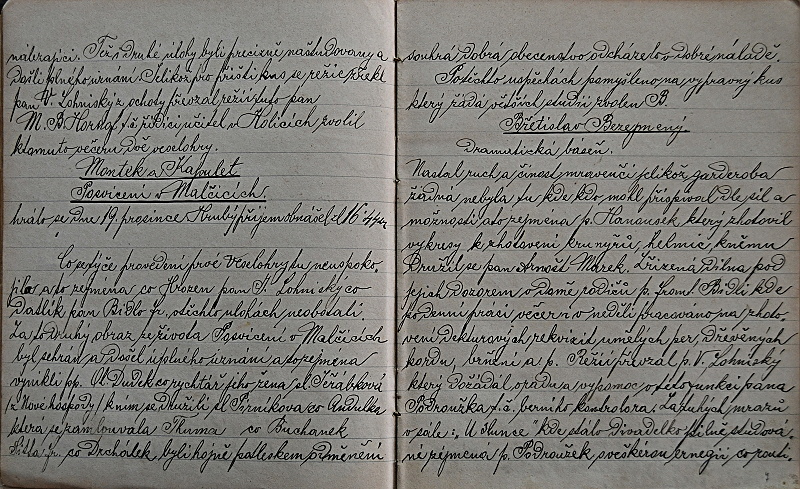 nálezající. Též i druhé úlohy byli precizně naštudovany a
Došli plného uznání. Jelikož pro příští kus se režie zřekl
pan V. Lohniský z ochoty převzal režii tuto pan
M. B. Horský t. č. řídící učitel v Holicích zvolil
k tomuto večeru dvě veselohry.
Montek a Kapulet
Posvícení v Malčicích.
hrálo se dne 19. prosince Hrubý příjem obnášel zl 16 44 kr
Co se týče provedení prvé veselohry tu neuspoko-
jila a to zejmena co Frozen pan J. Lohniský co
Datlík pan Bidlo fr. v těchto ulohách neobstáli.
Za to druhý obraz ze života Posvícení v Malčicích
byl sehrán a došel úplného uznání a to zejmena
vynikli pp. Ot. Dudek co rychtář jiho žena sl. Jeřábková
/z Nové hospody/ k nim se družili sl. Pirníkova co Andulka
ktera se zamlouvala Thuma co Buchanek
Sitta fr. co Drchálek, byli hojně potleskem odměněni
souhra dobrá obecenstvo odcházelo v dobré náladě.
Po těchto uspěchách pomyšleno na vypravný kus
který žádá větších studií zvolen B.
Břetislav Bezejmený.
Dramatická báseň.
Nastal ruch a činost mravenčí jelikož garderoba
žádná nebyla tu kde kdo mohl přispíval dle sil a
možnosti a to zejmena p. Hanousek který zhotovil
vykresy k zhotovení krunyřů, helmic, k němu
Družil se pan Arnošt Marek. Zřízená dílna pod
jejich dozorem v domě rodičů p. Frant. Bidli kde
po denní práci večer i v neděli pracováno na zhoto-
vení dekturových rekvizit umělých per, Dřevěných
kordu, brnění a p. Režii převzal p. V. Lohniský
který dožádal o radu a vypomoc v této funkci pana
Podroužka t. č. berního kontrolora. Za tuhých mrazů
v sale: „U slunce" kde stálo Divadelko pilně studová-
no zejmena p. Podroužek, s veškerou energii, co routi-